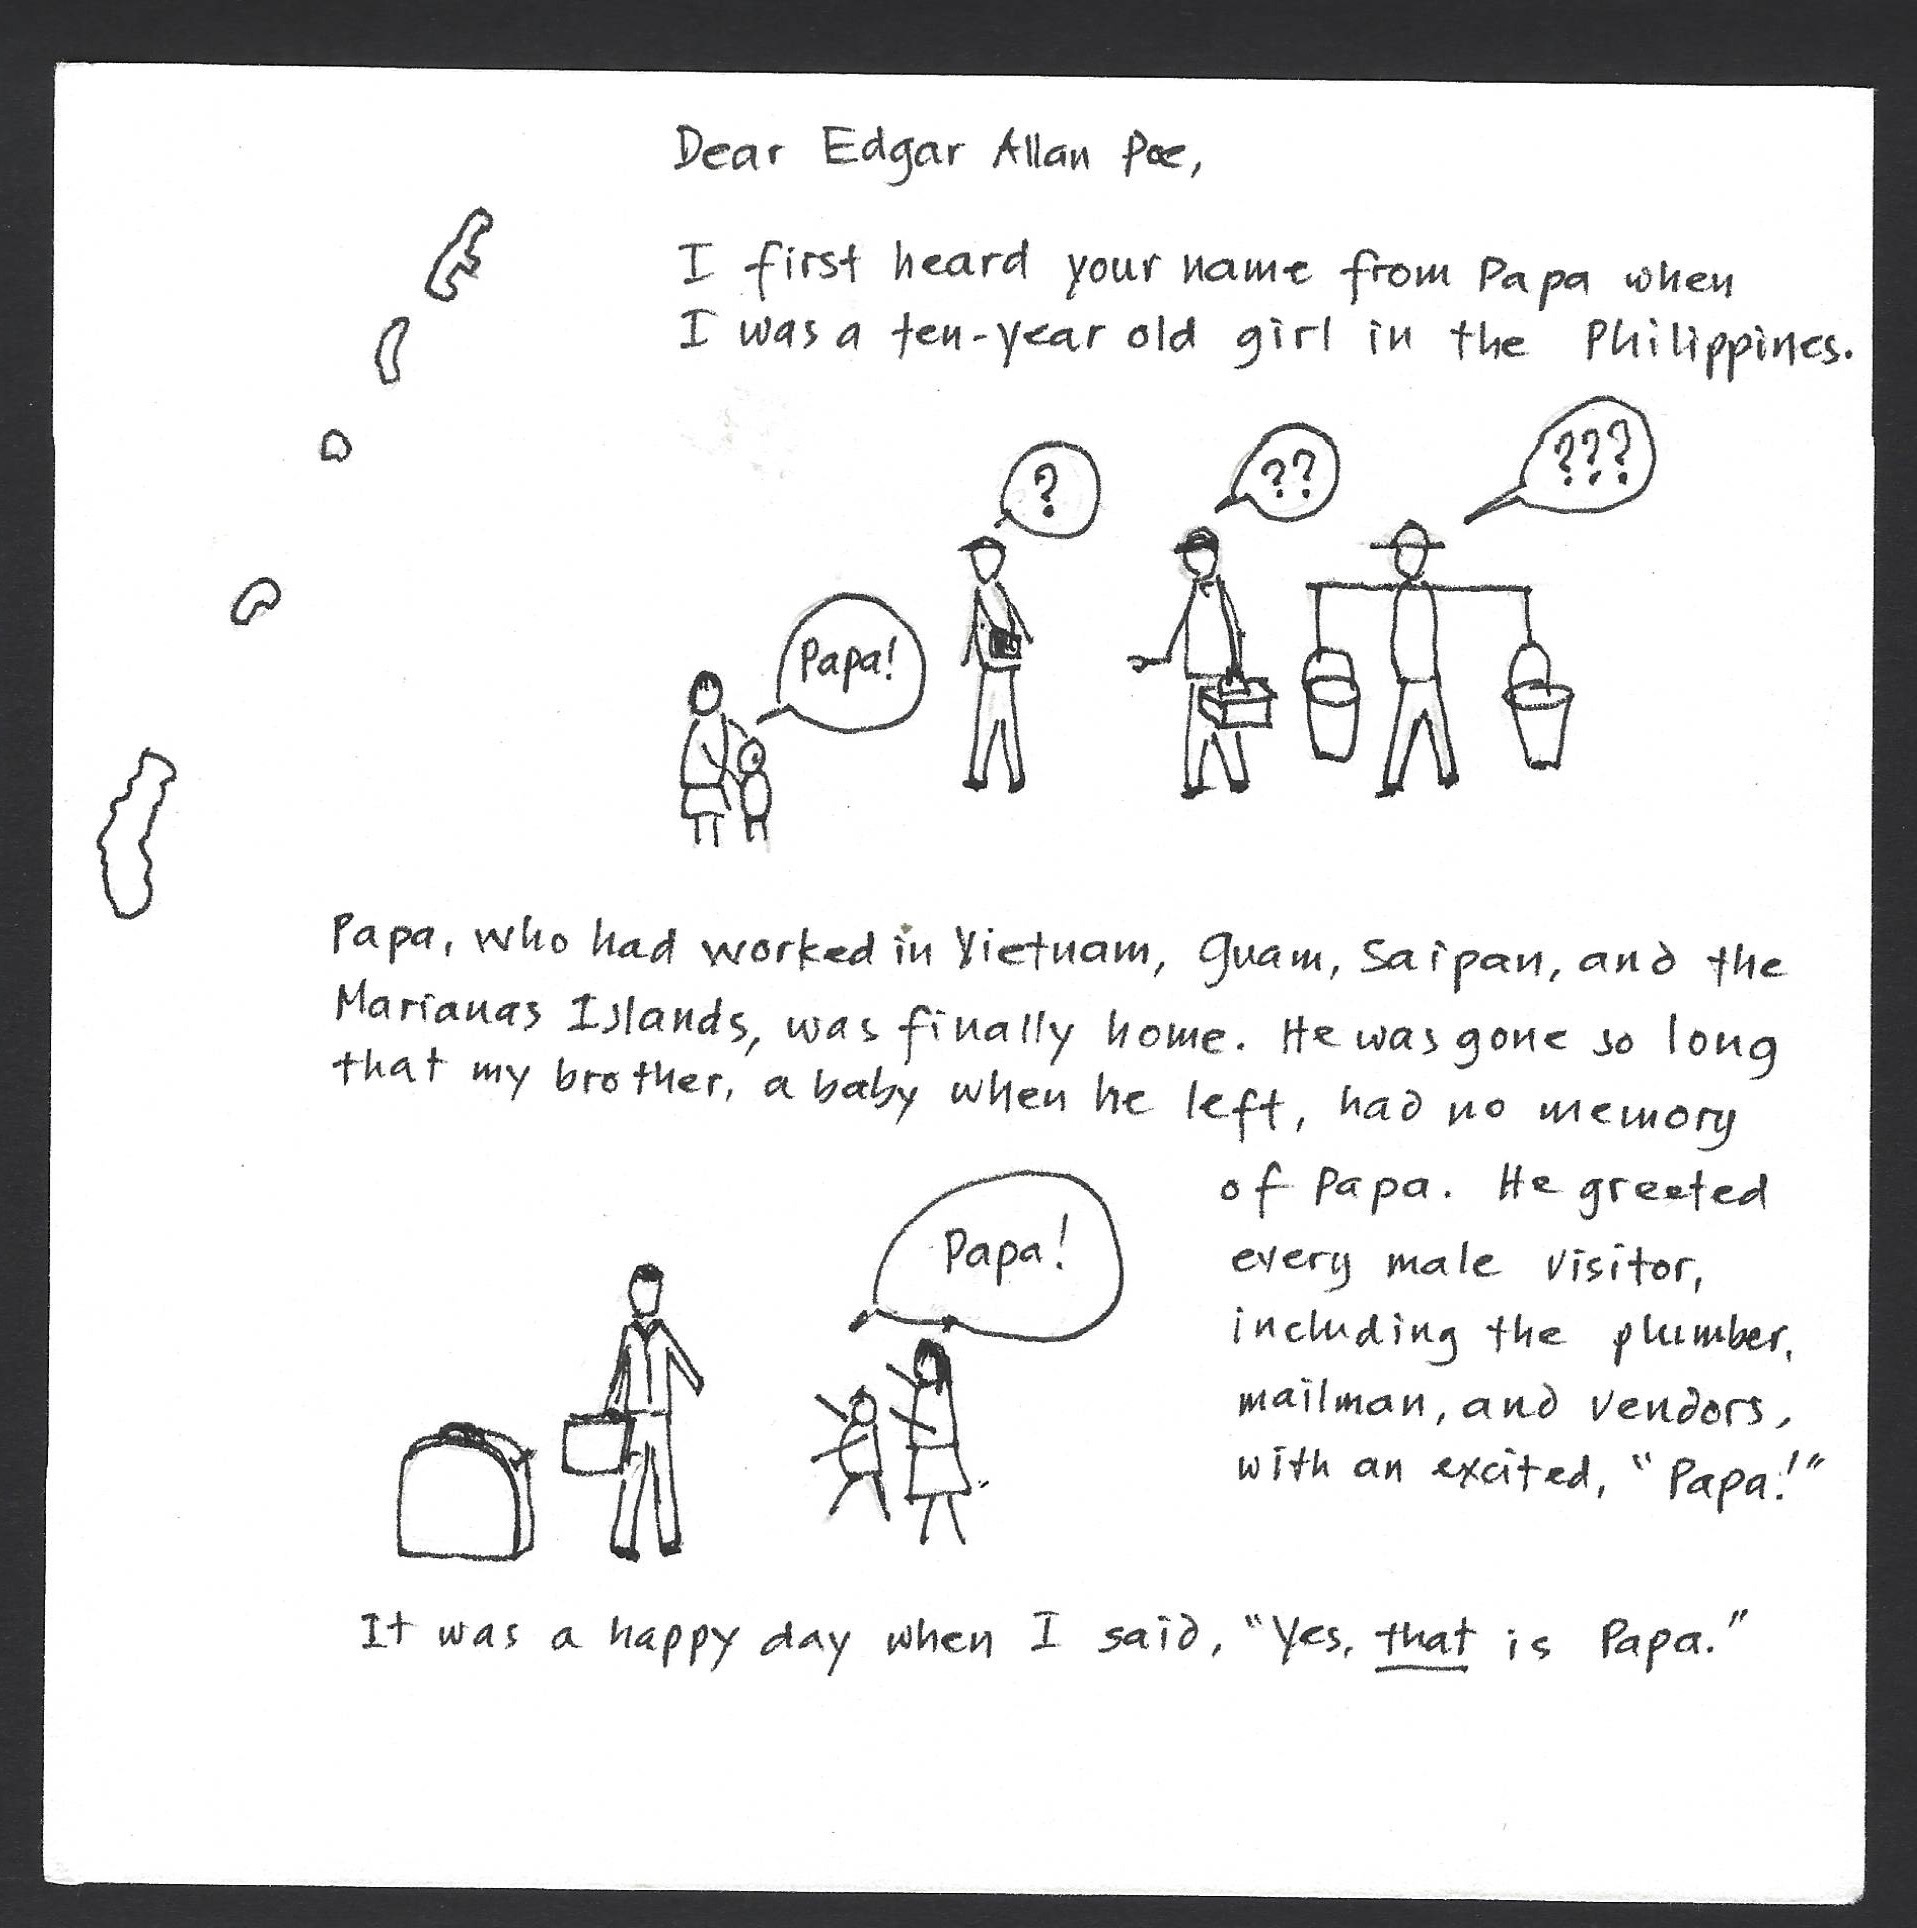 Dear Edgar Allan Poe,
I first heard your name from Papa when
I was a ten-year old girl in the Philippines.
?
??
???
Papa!
Papa, who had worked in Vietnam, Guam, Saipan, and the
Marianas Islands, was finally home. He was gone so long
that my brother, a baby when he left, had no memory
of Papa. He greeted
every male visitor,
including the plumber,
mailman, and vendors,
with an excited, "Papa!"
Papa!
It was a happy day when I said, "Yes, that is Papa."